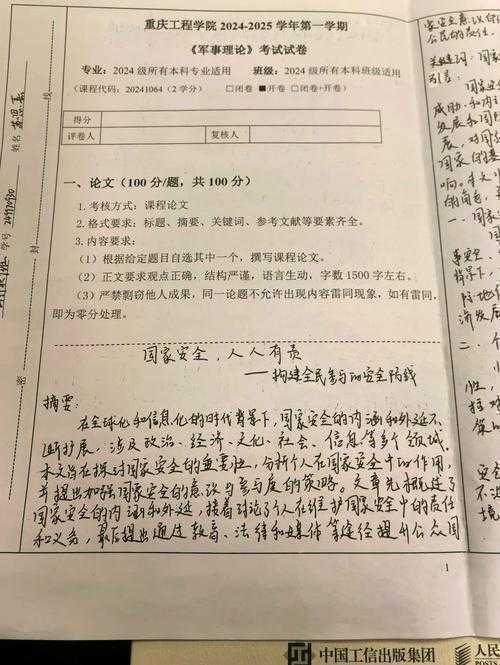 重庆工程学院 2024-2025 学年第一学期
《军事理论》考试试卷
专业：2024 级所有本科专业适用 班级：2024 级所有本科班级适用
（课程代码：20241064（2 学分） □闭卷 ■开卷 □闭卷+开卷）
得分
评卷人 复核人
一、论文（100 分/题，共 100 分）
1. 考核方式：课程论文
2. 格式要求：标题、摘要、关键词、参考文献等要素齐全。
3. 内容要求：
（1）根据给定题目自选其中一个，撰写课程论文。
（2）正文要求观点正确，结构严谨，语言生动，字数 1500 字左右。
（3）严禁剽窃他人成果，同一论题不允许出现内容雷同现象，如有雷同，
即为零分处理。
国家安全，人人有责
——构建全民参与的安全防线
摘要：
在全球化和信息化的时代背景下，国家安全的内涵和外延不
断扩展，涉及政治、经济、文化、社会、信息等多个领域。
本文旨在探讨国家安全的重要性，分析个人在国家安全中的作用，
并提出加强国家安全的意识与参与度的策略。文章先概述了
国家安全的内涵和外延，接着讨论了个人在维护国家安全中的责任
和义务，最后提出通过教育、法律和媒体等途径提升公众国
1
姓名
学号
线
封
密
家安全意识
公民的责任。
关键词：国家
引言：
国家安
发展和国
国家的
一、国家
背景下，
济发展
二、个
中国工信出版集团
人民